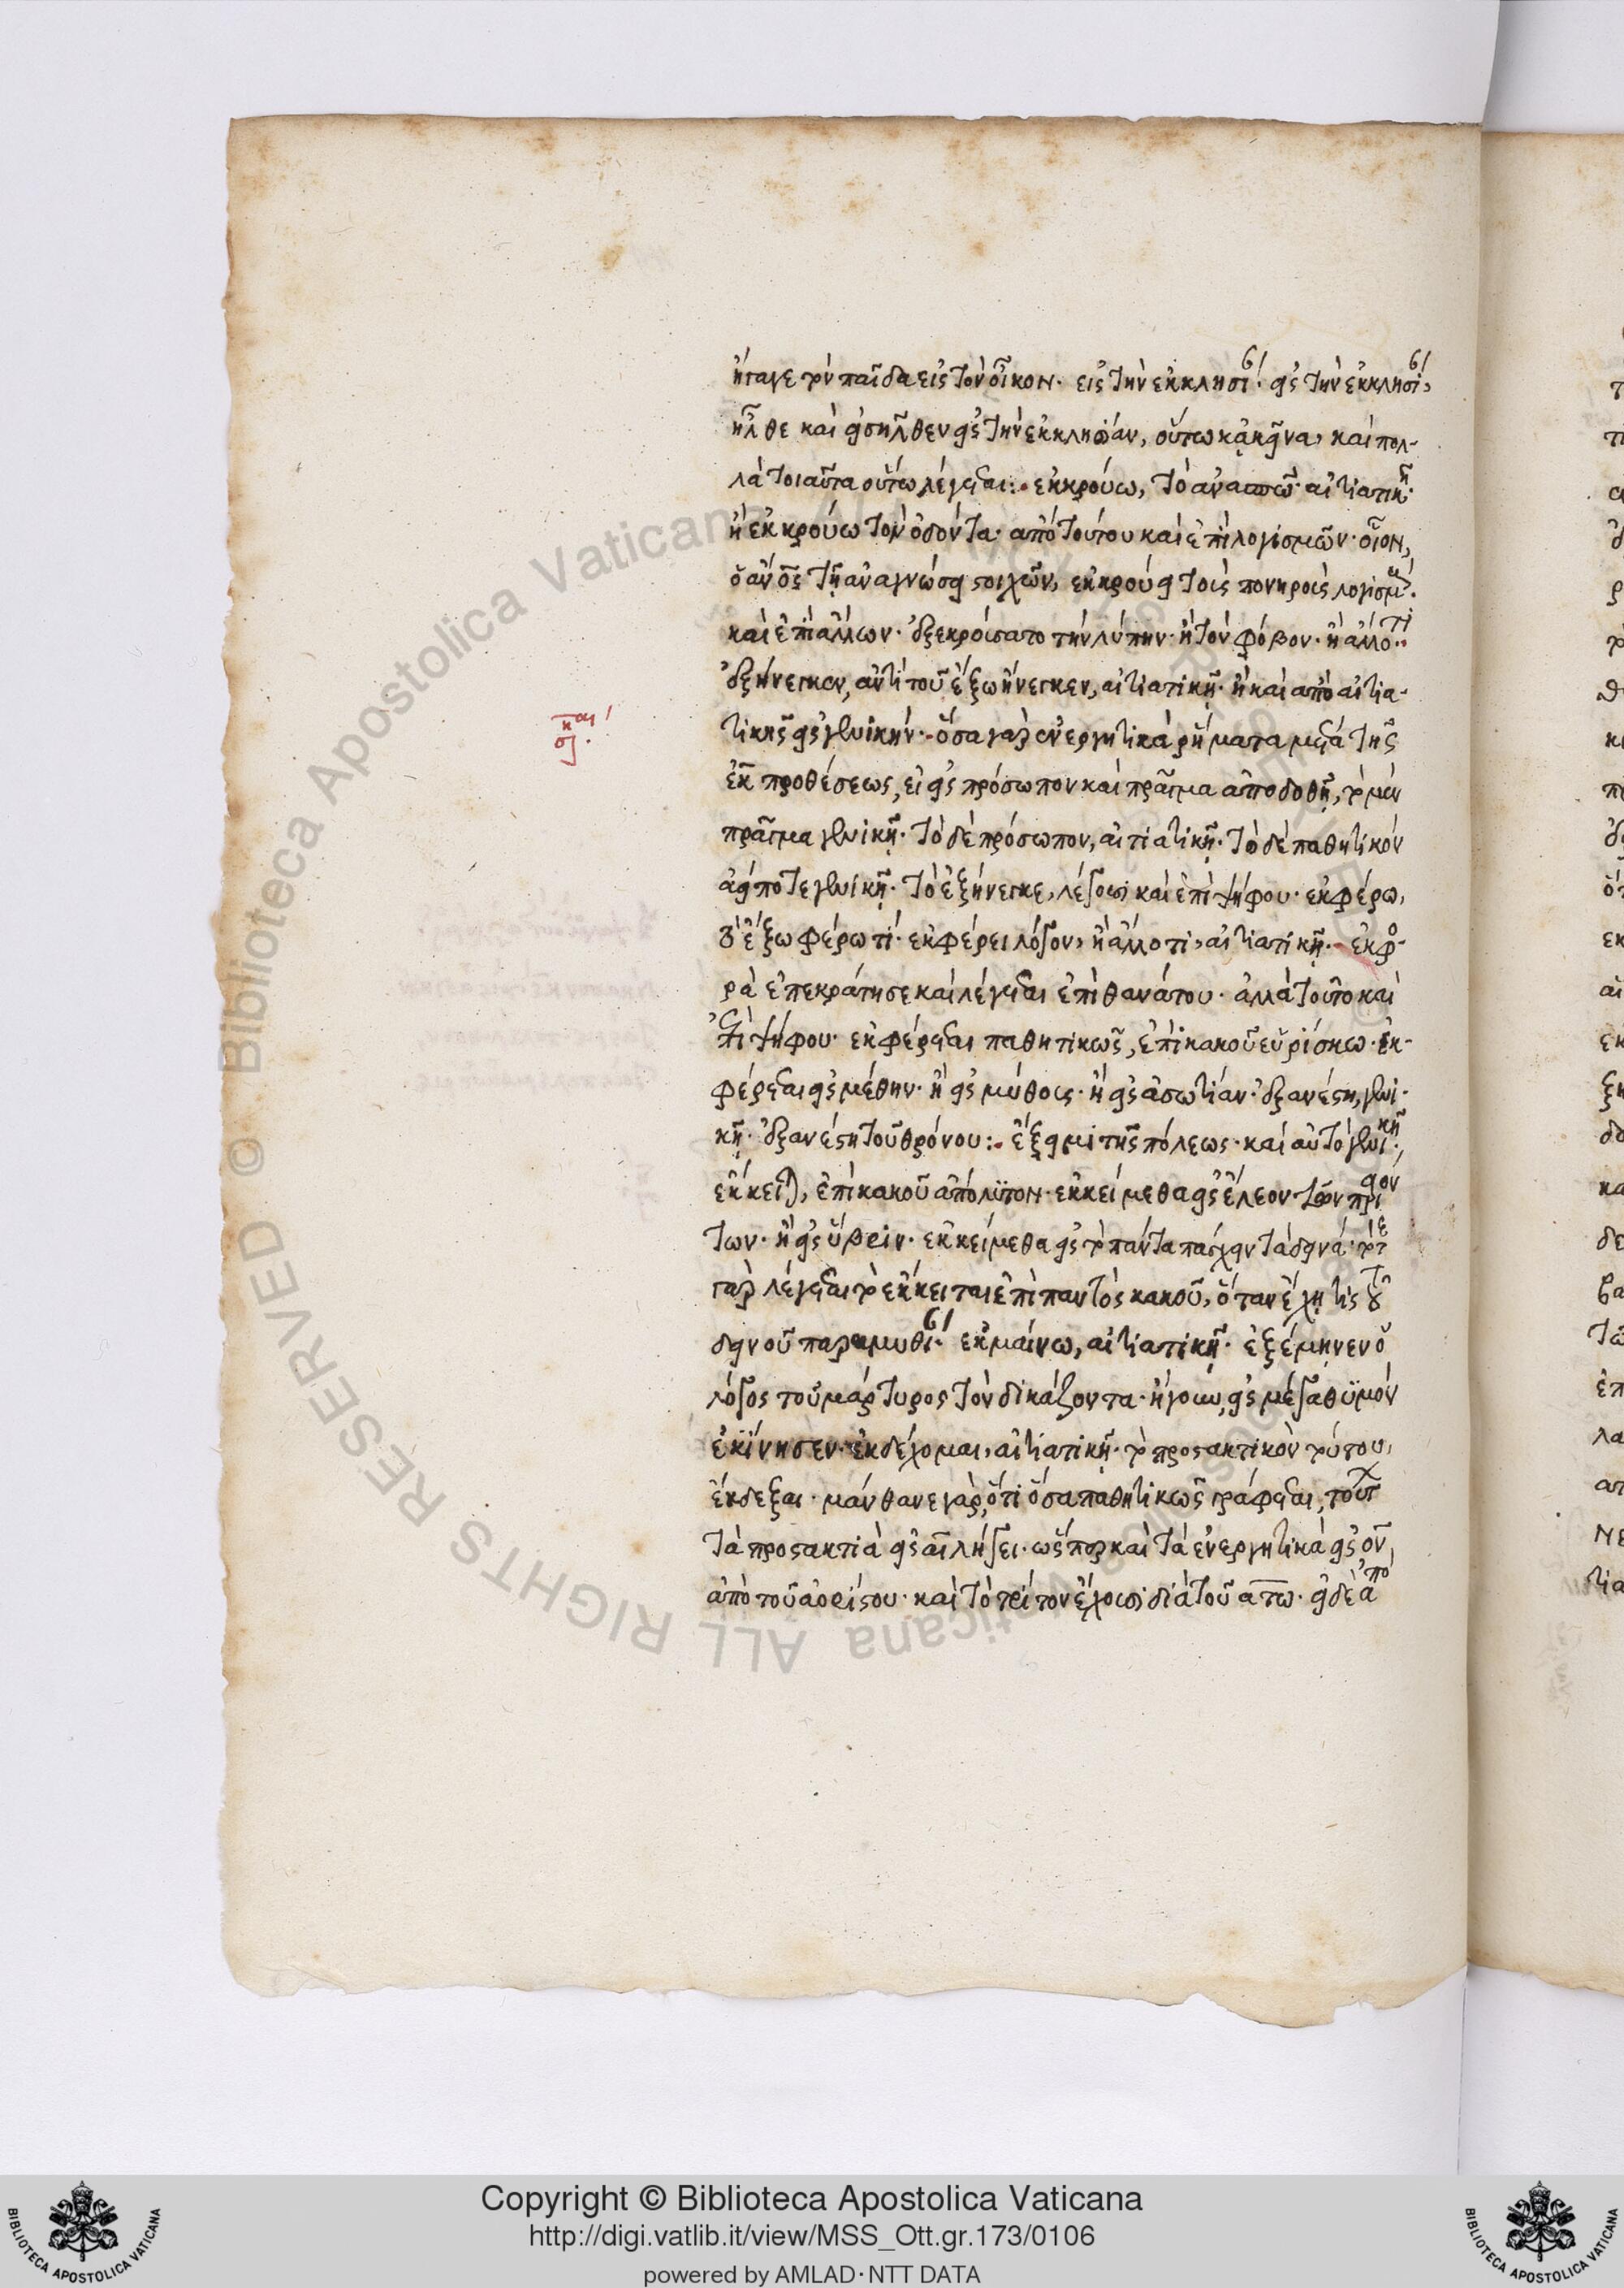 ἤγαγε τὸν παῖδα εἰς τὸν οἶκον· εἰς τὴν ἐκκλησί· εἰς τὴν ἐκκλησί,
ἦλθε καὶ εἰσῆλθεν εἰς τὴν ἐκκλησίαν, οὕτω κἀκεῖνα, καὶ πολ-
λὰ τοιαῦτα οὕτω λέγεται:. ἐκκρούω, τὸ ἀνασπῶ· αἰτιατικῇ·
ἢ ἐκκρούω τὸν ὀδόντα· ἀπὸ τούτου καὶ ἐπὶ λογισμῶν· οἷον,
τῇ ἀναγνώσει στοιχῶν, ἐκκρούει τοὺς πονηροὺς λογισμ·
καὶ ἐπὶ ἄλλων· ἐξεκρούσατο τὴν λύπην· ἢ τὸν φόβον· ἢ ἄλλο τι·
ἐξήνεγκεν, ἀντὶ τοῦ ἔξω ἤνεγκεν, αἰτιατικῇ· ἢ καὶ ἀπὸ αἰτια-
τικῆς εἰς γενικήν· ὅσα γὰρ ἐνεργητικὰ ῥήματα μετὰ τῆς
ἐκ προθέσεως, εἰ εἰς πρόσωπον καὶ πρᾶγμα ἀποδοθῇ, τὸ μὲν
πρᾶγμα γενικῇ· τὸ δὲ πρόσωπον, αἰτιατικῇ· τὸ δὲ παθητικὸν
ἀείποτε γενικῇ· τὸ ἐξήνεγκε, λέγουσι καὶ ἐπὶ ψήφου· ἐκφέρω,
τὸ ἔξω φέρω τί· ἐκφέρει λόγον, ἢ ἄλλο τι, αἰτιατικῇ· ἐκφο-
ρὰ ἐπεκράτησε καὶ λέγεται ἐπὶ θανάτου· ἀλλὰ τοῦτο καὶ
ἐπὶ ψήφου· ἐκφέρεται παθητικῶς, ἐπὶ κακοῦ εὑρίσκω· ἐκ-
φέρεται εἰς μέθην· ἢ εἰς μύθους· ἢ εἰς ἀσωτίαν· ἐξανέστη, γενι-
κῇ· ἐξανέστη τοῦ θρόνου:. ἔξειμι τῆς πόλεως· καὶ αὐτὸ γενικῇ·,
ἔκκειται, ἐπὶ κακοῦ ἀπόλυτον· ἐκκείμεθα εἰς ἔλεον τῶν
των· ἢ εἰς ὕβριν· ἐκκείμεθα εἰς τὸ πάντα πάσχειν τὰ δεινά· τότε
γὰρ λέγεται τὸ ἔκκειται ἐπὶ παντὸς κακοῦ, ὅταν ἔχῃ τις τοῦ
δεινοῦ παραμυθί· ἐκμαίνω, αἰτιατικῇ· ἐξέμηνεν ὁ
λόγος τοῦ μάρτυρος τὸν δικάζοντα· ἤγουν, εἰς μέγα θυμὸν
ἐκίνησεν· ἐκδέχομαι, αἰτιατικῇ· τὸ προστακτικὸν τούτου,
ἔκδεξαι· μάνθανε γὰρ, ὅτι ὅσα παθητικῶς γράφεται, τούτ
τὰ προστακτικὰ εἰς αι λήγει· ὥσπερ καὶ τὰ ἐνεργητικὰ εἰς ον,
ἀπὸ τοῦ ἀορίστου· καὶ τὸ τρίτον ἔχουσι διὰ τοῦ ατω· εἰ δὲ ἀπὸ
ση.
Copyright © Biblioteca Apostolica Vaticana
http://digi.vatlib.it/view/MSS_Ott.gr.173/0106
powered by AMLAD·NTT DATA
BIBLIOTECA APOSTOLICA VATICANA
BIBLIOTECA APOSTOLICA VATICANA
© Biblioteca Apostolica Vaticana ALL RIGHTS RESERVED